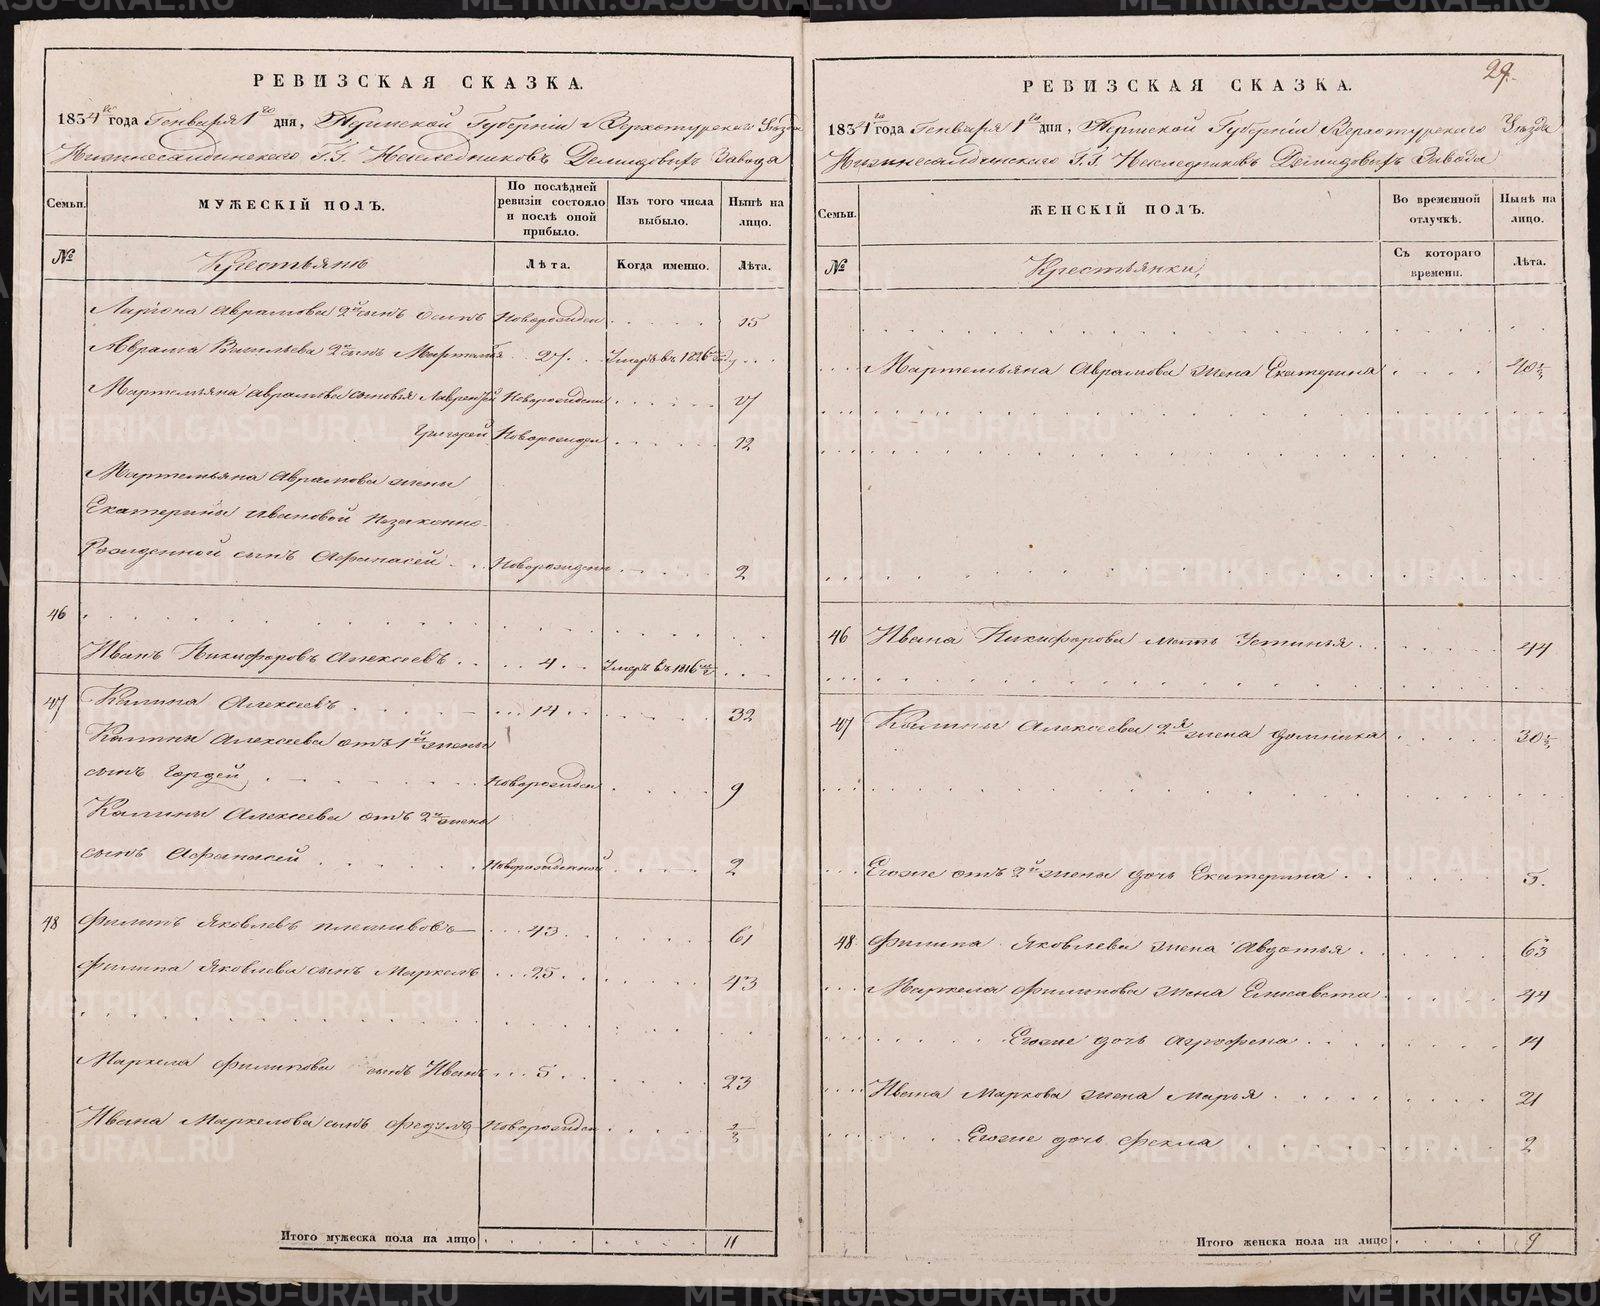 РЕВИЗСКАЯ СКАЗКА.
1834го года Генваря 1го дня, Пермской Губерніи Верхотурскаго Уѣзда
Нижнесалдинскаго Г.Г. Наследниковъ Демидовыхъ Завода
Семьи.
МУЖЕСКІЙ ПОЛЪ.
По послѣдней ревизіи состояло и послѣ оной прибыло.
Изъ того числа выбыло.
Нынѣ на лицо.
№
Крестьянъ
Лѣта.
Когда именно.
Лѣта.
Лариона Аврамова 2й сынъ Новорожден 15
Аврама Васильева 2й сынъ 27 Умеръ въ 1826
Мартемьяна Аврамова сыновья Лаврентей Новорожденн 17
Григорей Новорожден 12
Мартемьяна Аврамова жены
Екатерины Ивановой незаконно
Рожденной сынъ Афанасей Новорожденн 2
46
Иванъ Никифоровъ Алексеевъ 4 Умеръ въ 1816
47 Калина Алексеевъ 14 32
Калины Алексеева отъ 1й жены
сынъ Гордей Новорожден 9
Калины Алексеева отъ 2й жены
сынъ Афанасей Новорожденной 2
48 Филипъ Яковлевъ Плешивовъ 43 61
Филипа Яковлева сынъ Маркелъ 25 43
Маркела Филипова сынъ Иванъ 5 23
Ивана Маркелова сынъ Федулъ Новорожден
Итого мужеска пола на лицо 11
29.
РЕВИЗСКАЯ СКАЗКА.
1834го года Генваря 1го дня, Пермской Губерніи Верхотурскаго Уѣзда
Нижнесалдинскаго Г.Г. Наследниковъ Демидовыхъ Завода
Семьи.
ЖЕНСКІЙ ПОЛЪ.
Во временной отлучкѣ.
Нынѣ на лицо.
№
Крестьянки,
Съ котораго времени.
Лѣта.
Мартемьяна Аврамова жена Екатерина 40
46 Ивана Никифорова мать Устинья 44
47 Калины Алексеева 2я жена Домника 30
Егоже отъ 2й жены дочь Екатерина 5.
48 Филипа Яковлева жена Авдотья 63
Маркела Филипова жена Елисавета 44
Егоже дочь Агрофена 14
Ивана Маркова жена Марья 21
Егоже дочь Фекла 2
Итого женска пола на лицо 9
METRIKI.GASO-URAL.RU